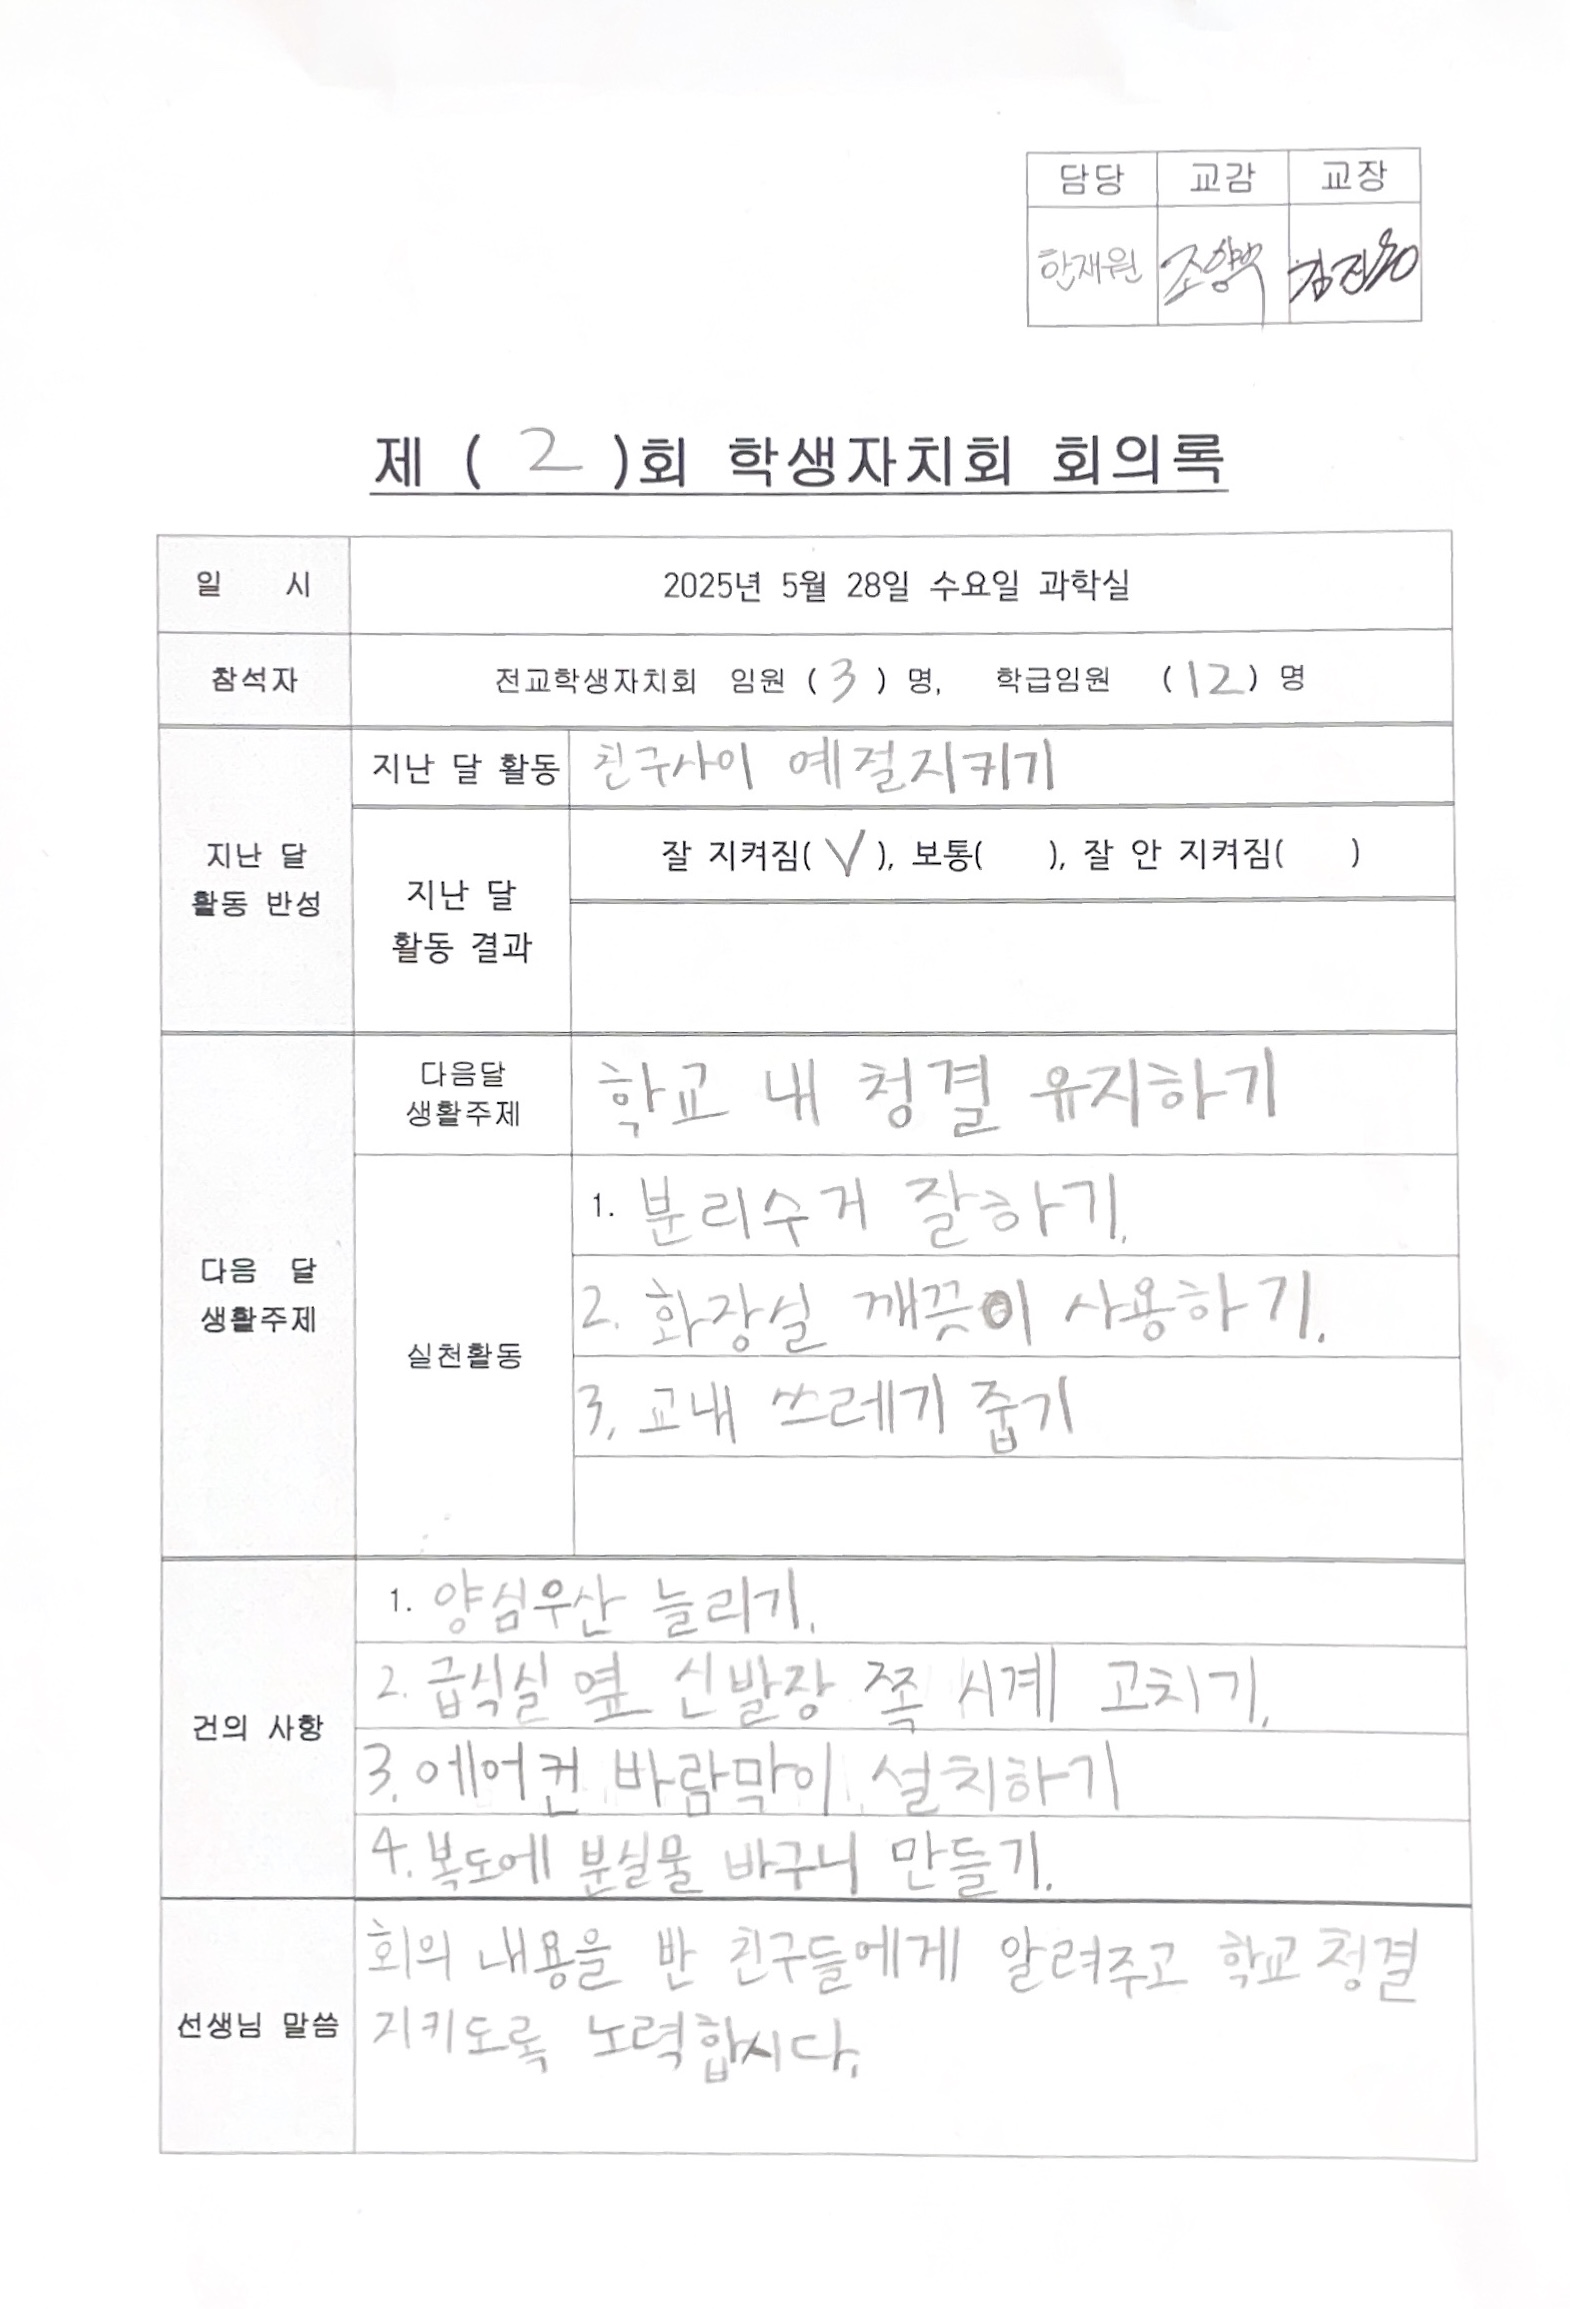 담당 교감 교장
한재원
제 ( 2 )회 학생자치회 회의록
일 시 2025년 5월 28일 수요일 과학실
참석자 전교학생자치회 임원 ( 3 ) 명, 학급임원 ( 12 ) 명
지난 달 활동 반성
지난 달 활동 친구사이 예절지키기
지난 달 활동 결과
잘 지켜짐( V ), 보통( ), 잘 안 지켜짐( )
다음 달 생활주제
다음달 생활주제
학교 내 청결 유지하기
실천활동
1. 분리수거 잘하기.
2. 화장실 깨끗이 사용하기.
3. 교내 쓰레기 줍기
건의 사항
1. 양심우산 늘리기.
2. 급식실 옆 신발장 쪽 시계 고치기.
3. 에어컨 바람막이 설치하기
4. 복도에 분실물 바구니 만들기.
선생님 말씀
회의 내용을 반 친구들에게 알려주고 학교 청결
지키도록 노력합시다.